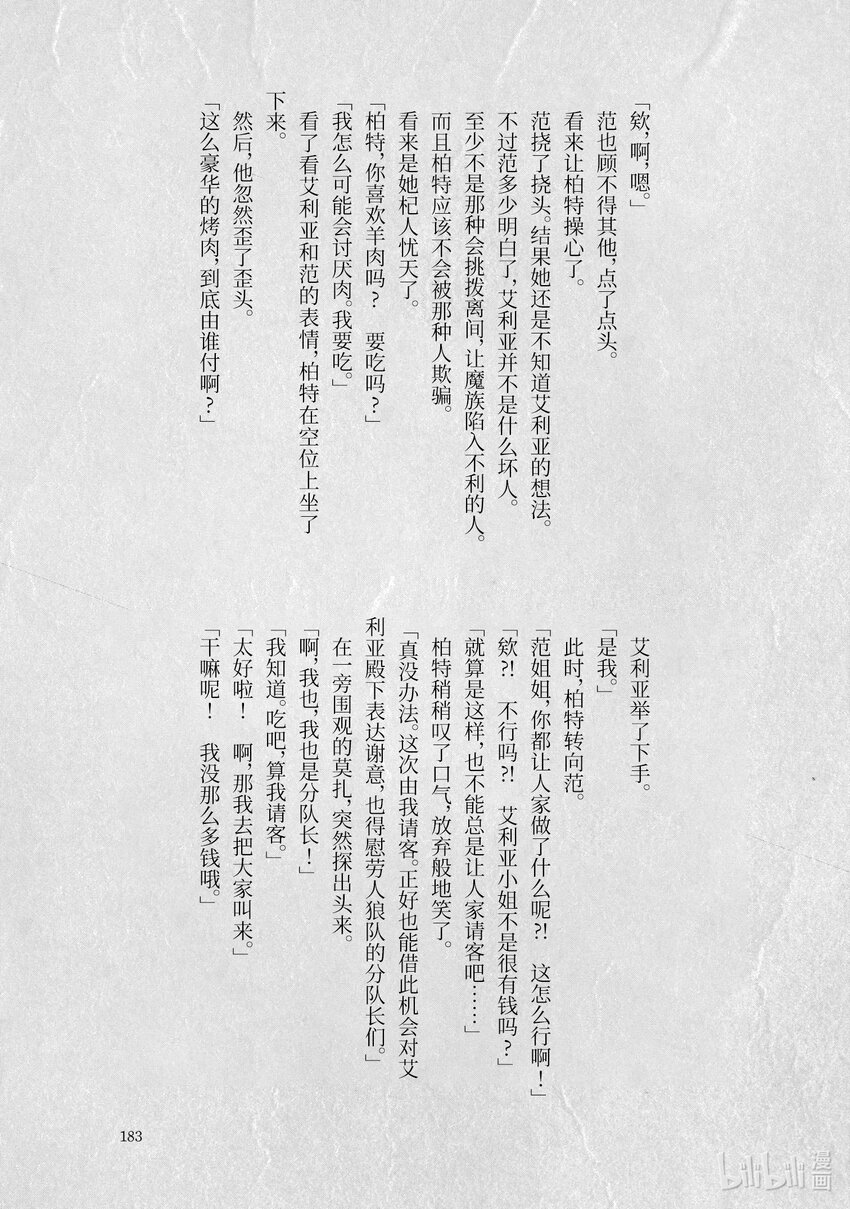 「欸，啊，嗯。」
范也顾不得其他，点了点头。
看来让柏特操心了。
范挠了挠头。结果她还是不知道艾利亚的想法。
不过范多少明白了，艾利亚并不是什么坏人。
至少不是那种会挑拨离间，让魔族陷入不利的人。
而且柏特应该不会被那种人欺骗。
看来是她杞人忧天了。
「柏特，你喜欢羊肉吗？　要吃吗？」
「我怎么可能会讨厌肉。我要吃。」
看了看艾利亚和范的表情，柏特在空位上坐了
下来。
然后，他忽然歪了歪头。
「这么豪华的烤肉，到底由谁付啊？」
艾利亚举了下手。
「是我。」
此时，柏特转向范。
「范姐姐，你都让人家做了什么呢？！　这怎么行啊！」
「欸？！　不行吗？！　艾利亚小姐不是很有钱吗？」
「就算是这样，也不能总是让人家请客吧……」
柏特稍稍叹了口气，放弃般地笑了。
「真没办法。这次由我请客。正好也能借此机会对艾
利亚殿下表达谢意，也得慰劳人狼队的分队长们。」
在一旁围观的莫扎，突然探出头来。
「啊，我也，我也是分队长！」
「我知道。吃吧，算我请客。」
「太好啦！　啊，那我去把大家叫来。」
「干嘛呢！　我没那么多钱哦。」
183
bilibili 漫画